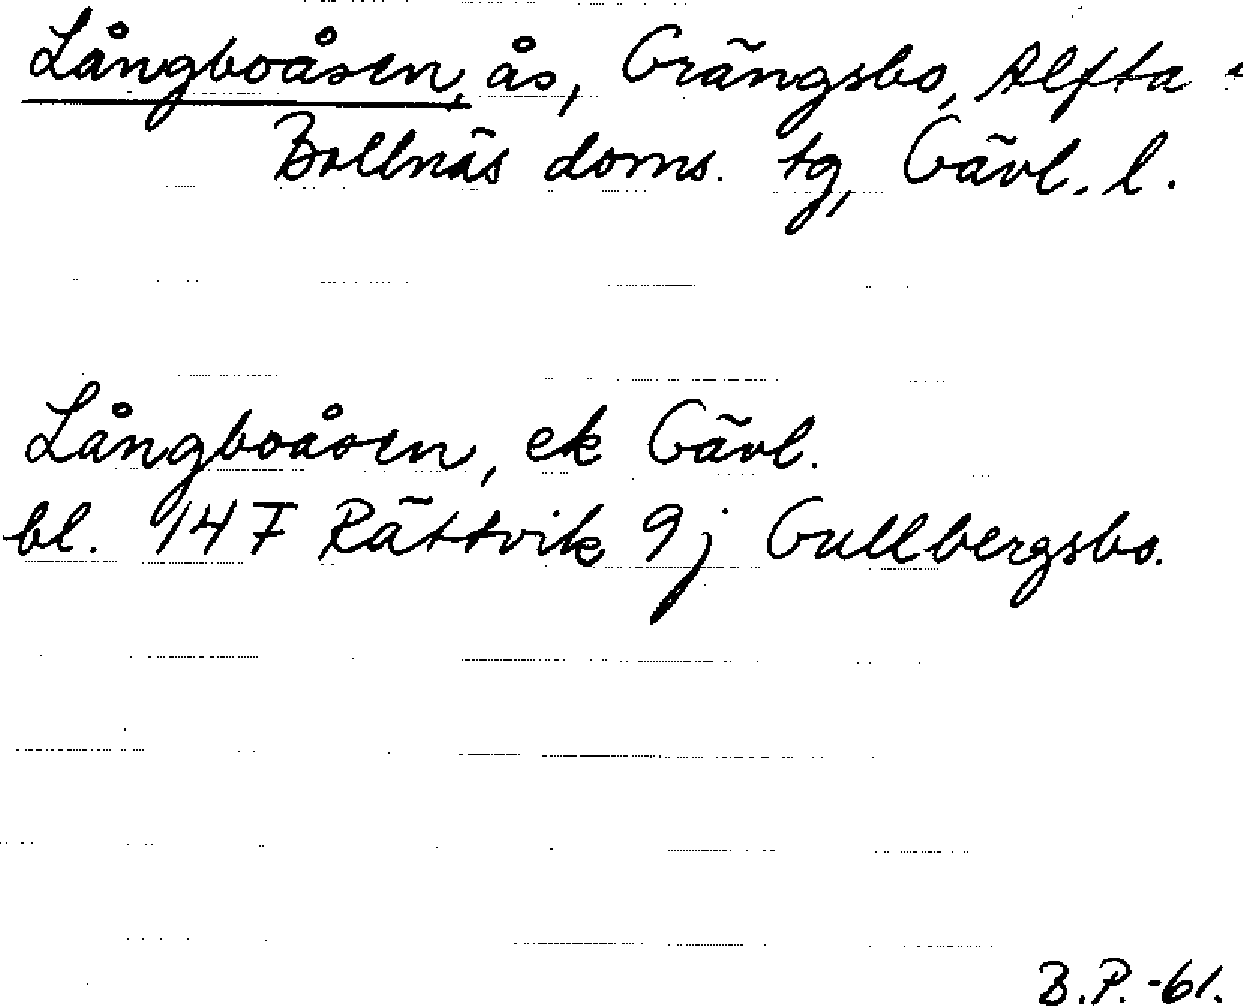 Långboåsen, ås, Grängsbo, Alfta
Bollnäs doms. tg, Gävl. l.
Långboåsen, ek Gävl.
bl. 147 Rättvik 9j Gullbergsbo.
B.P. -61.